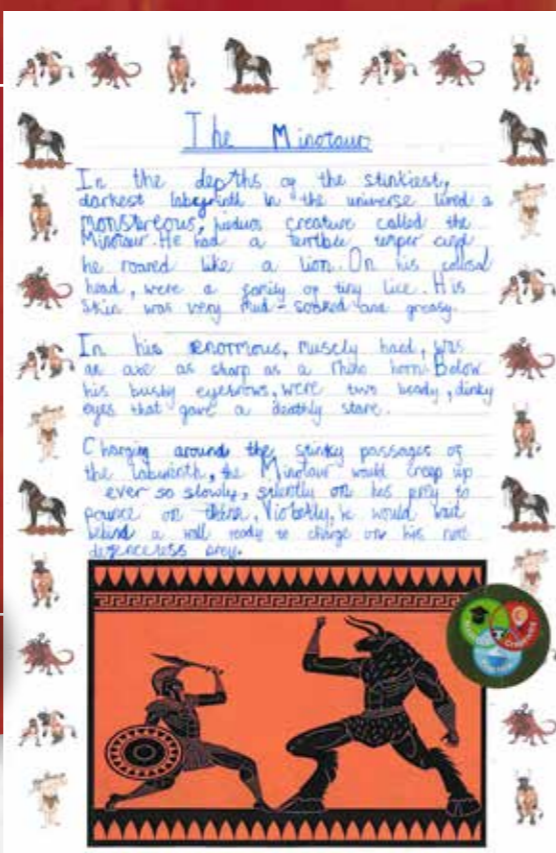 The Minotaur
In the depths of the stinkiest,
darkest labyrinth in the universe lived a
monstereous, hideous creature called the
Minotaur. He had a terrible temper and
he roared like a lion. On his collosal
head, were a family of tiny lice. His
skin was very mud-soaked and greasy.
In his enormous, muscly hand, was
an axe as sharp as a rhino horn. Below
his bushy eyebrows, were two beady, dinky
eyes that gave a deathly stare.
Charging around the stinky passages of
the labyrinth, the Minotaur would creep up
ever so slowly, silently on his prey to
pounce on them, he would wait
behind a wall ready to charge on his next
defenceless prey.